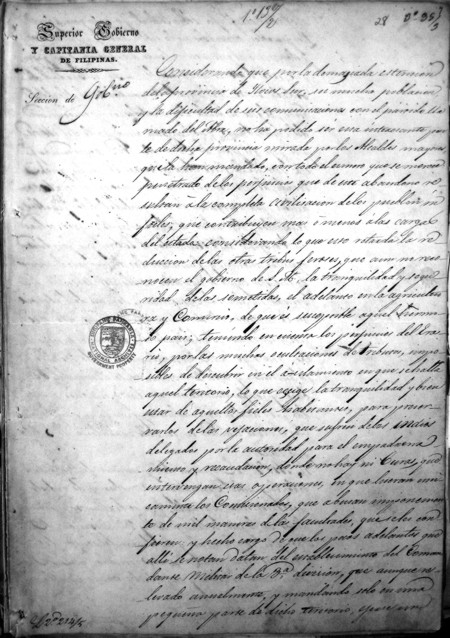 28
Superior Gobierno
Y CAPITANÍA GENERAL
DE FILIPINAS.
Seccion de Gobno
Considerando que por la demasiada estension
de la provincia de Ilocos Sur, su mucha poblacion
y la dificultad de sus comunicaciones con el partido lla
mado del Abra, no ha podido ser esa interesante par
te de dicha provincia mirada por los Alcaldes mayores
que la han mandado, con todo el esmero que se merece
penetrado de los perjuicios que de ese abandono re
sultan á la completa civilizacion de los pueblos in
fieles, que contribuyen mas ó menos á las cargas
del estado: considerando lo que eso retarda la re
duccion de las otras tribus feroces, que aun no reco
nocen el gobierno de S. M. la tranquilidad y segu
ridad de las sometidas, el adelanto en la agricultu
ra y Comercio, de que es suceptible aquel hermo
so pais; teniendo en cuenta los perjuicios del Era
rio, por las muchas ocultaciones de tributos, impo
sibles de descubrir en el aislamiento en que se halla
aquel territorio, lo que exige la tranquilidad y bien
estar de aquellos fieles habitantes, para preser
varlos de las vejaciones, que sufren de los
delegados por la autoridad para el empadrona
miento y recaudacion, donde no hay ni Curas, que
intervengan esas operaciones, en que tienen
los Comisionados, que abusan
te de mil maneras de las facultades, que se les con
fieren; y hecho cargo de que los pocos adelantos que
allí se notan datan del establecimiento del Coman
dante Militar de la 3.ª division, que aunque re
levado anualmente, y mandando solo en una
pequeña parte de dicho terreno,